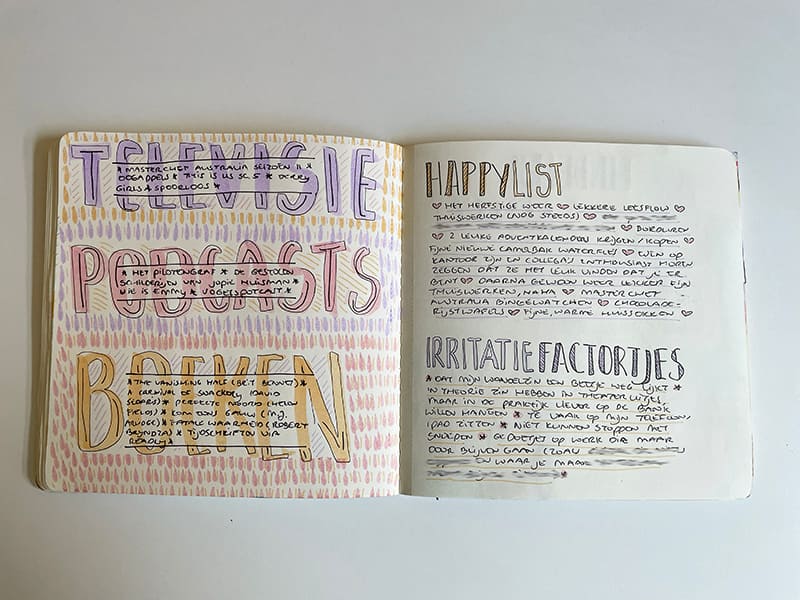 TELEVISIE
* MASTERCHEF AUSTRALIA SEIZOEN 11 *
OOGAPPELS * THIS IS US SE. 5 * DERRY
GIRLS * SPOORLOOS *
PODCASTS
* HET PILOTENGRAF * DE GESTOLEN
SCHILDERIJEN VAN JOPIE HUISMAN *
WIE IS EMMY * VOGELSPOTCAST *
BOEKEN
* THE VANISHING HALF (BRIT BENNET) *
A CARNIVAL OF SNACKERY (DAVID
SEDARIS) * PERFECTE MOORD (HELEN
FIELDS) * KOM TONS GAUW (M.J.
ARLIDGE) * FATALE WAARHEID (ROBERT
BRYNDZA) * TIJDSCHRIFTEN VIA
READLY *
HAPPYLIST
♡ HET HERFSTIGE WEER ♡ LEKKERE LEESFLOW ♡
THUISWERKEN (NOG STEEDS) ♡
♡ BORDUREN
♡ 2 LEUKE ADVENTKALENDERS KRIJGEN / KOPEN ♡
FIJNE NIEUWE CAMELBAK WATERFLES ♡ EVEN OP
KANTOOR ZIJN EN COLLEGA'S ENTHOUSIAST HOREN
ZEGGEN DAT ZE HET LEUK VINDEN DAT JE ER
BENT ♡ DAARNA GEWOON WEER LEKKER FIJN
THUISWERKEN, HAHA ♡ MASTERCHEF
AUSTRALIA BINGEWATCHEN ♡ CHOCOLADE-
RIJSTWAFELS ♡ FIJNE, WARME HUISSOKKEN ♡
IRRITATIEFACTORTJES
* DAT MIJN WANDELZIN EEN BEETJE WEG LIJKT *
IN THEORIE ZIN HEBBEN IN THEATERUITJES
MAAR IN DE PRAKTIJK LIEVER OP DE BANK
WILLEN HANGEN * TE VAAK OP MIJN TELEFOON/
IPAD ZITTEN * NIET KUNNEN STOPPEN MET
SNOEPEN * GEDOETJES OP WERK DIE MAAR
DOOR BLIJVEN GAAN (ZOALS
EN WAAR JE MAAR
*